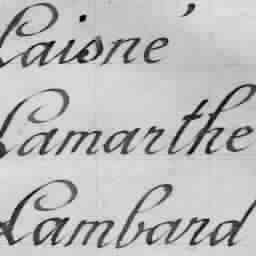 Laisné
Lamarthe
Lambard